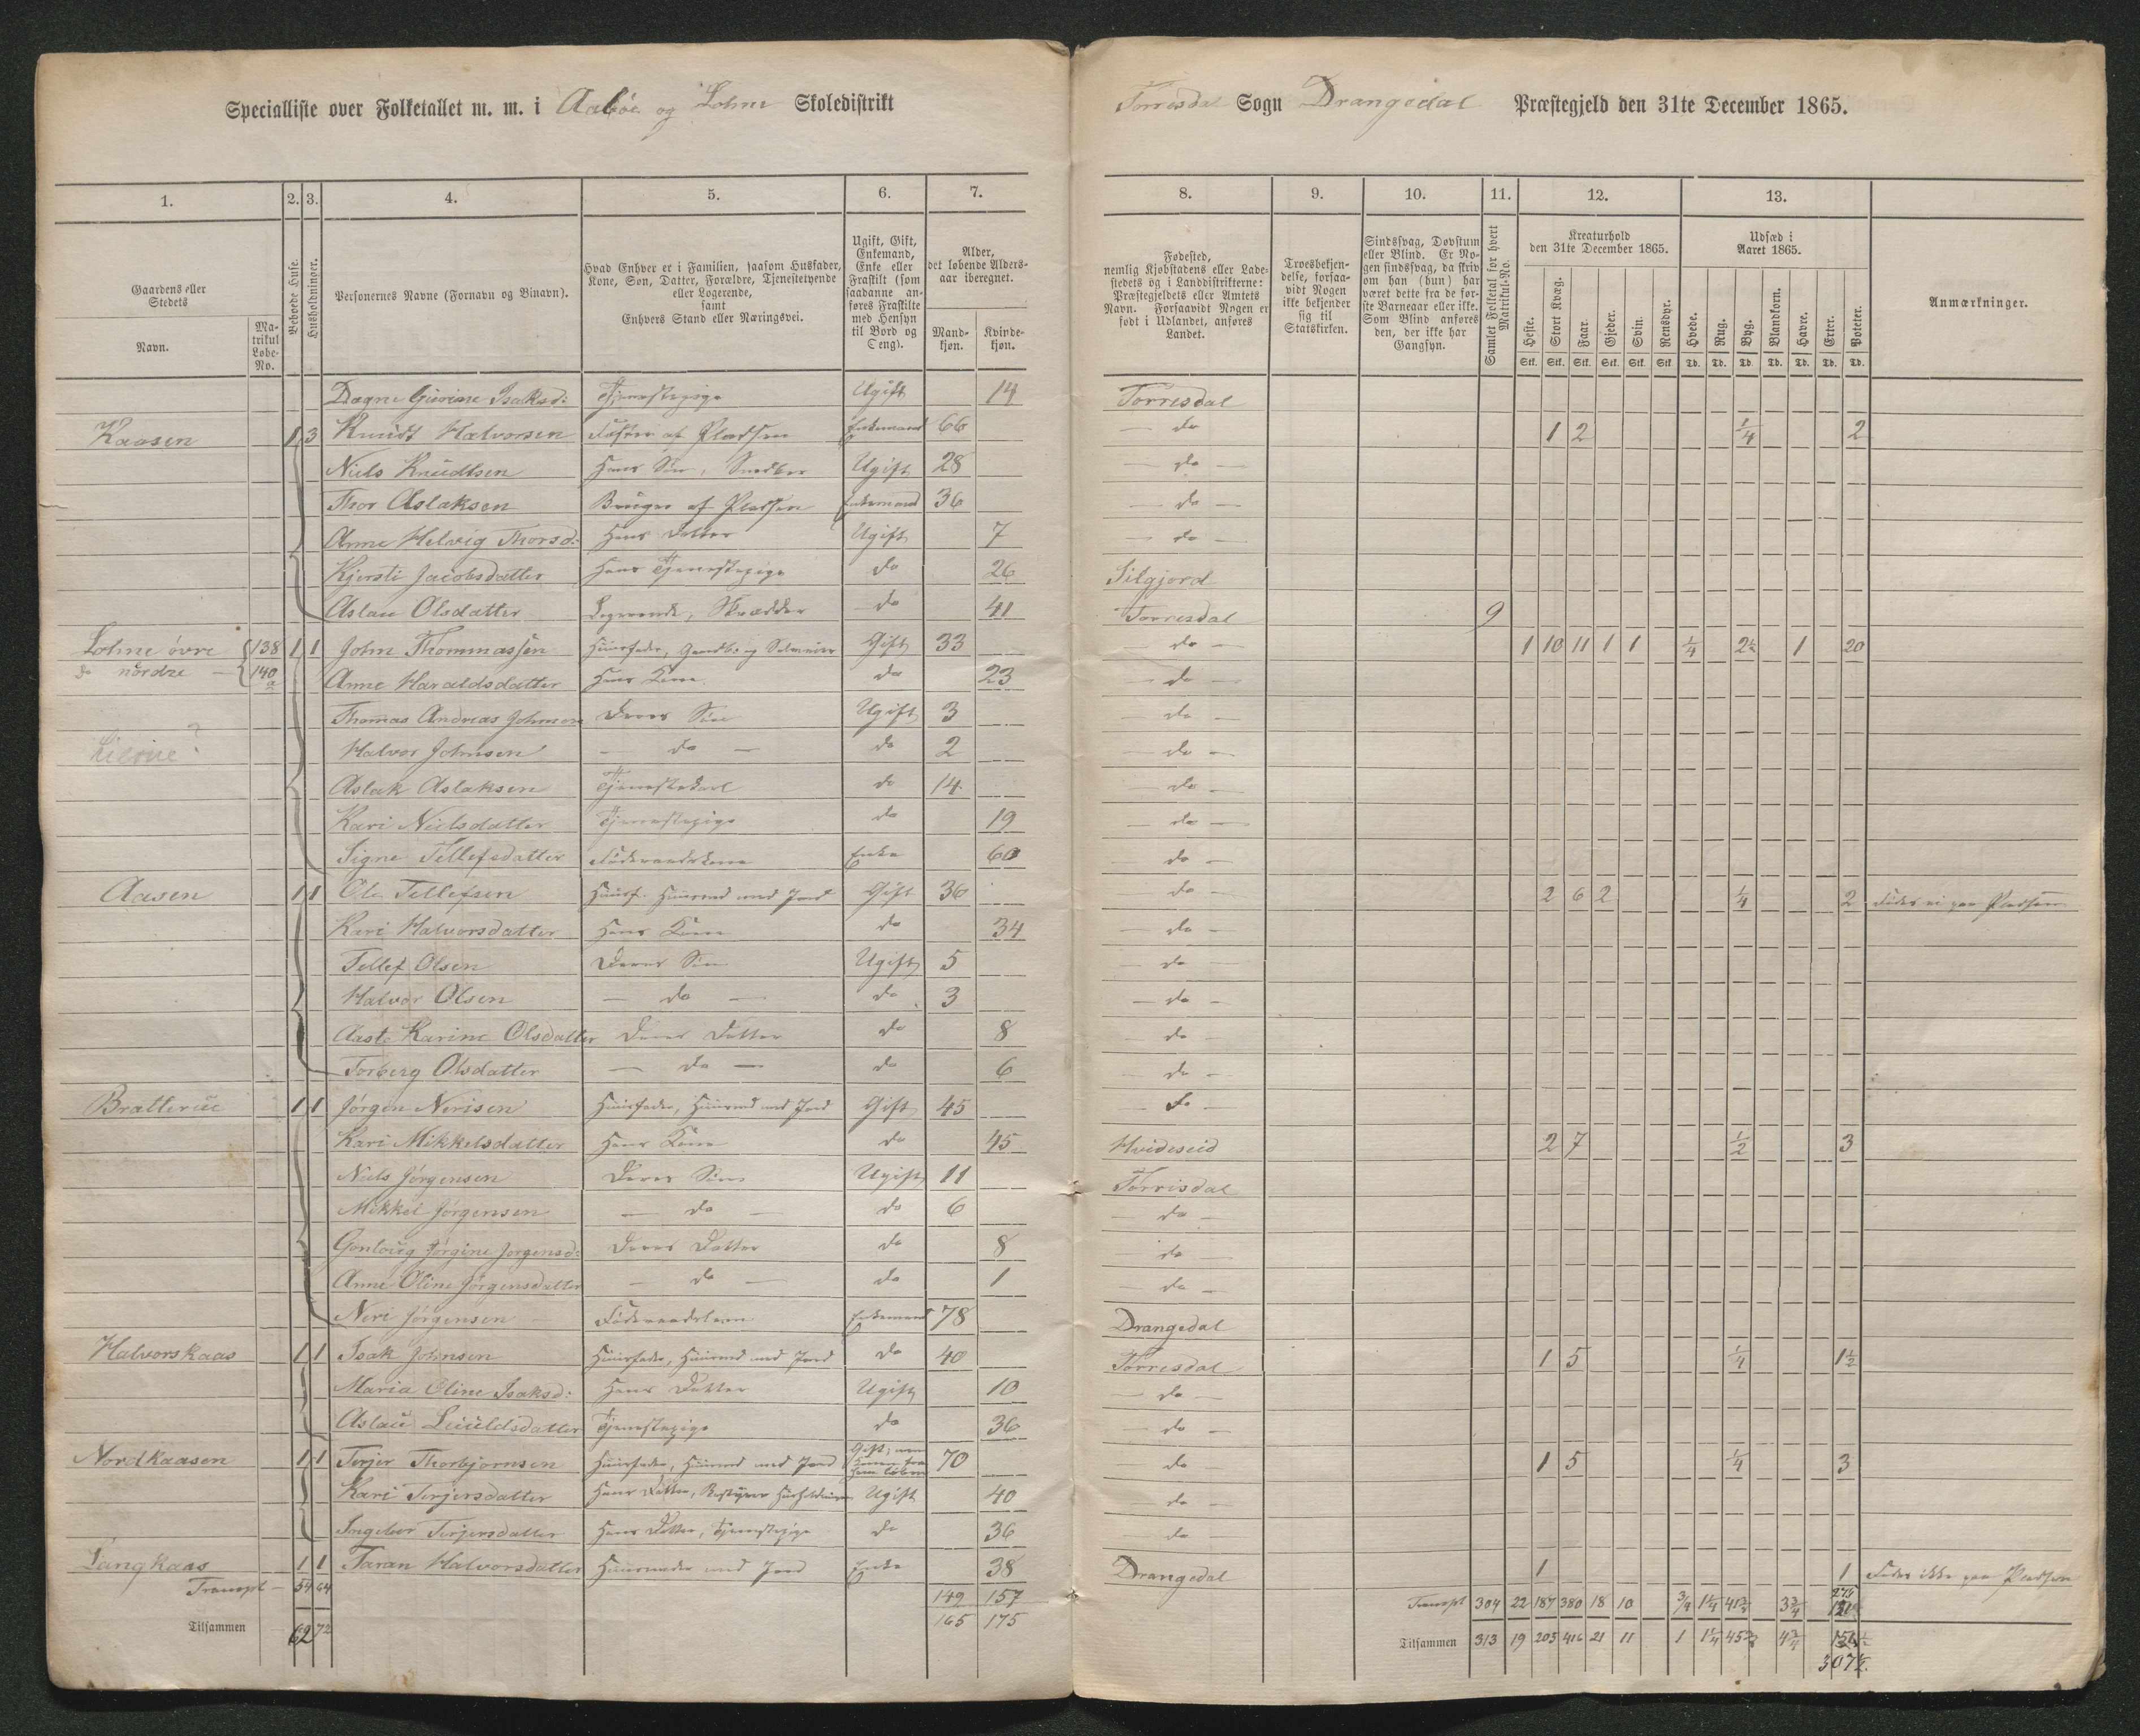 Specialliste over Folketallet m. m. i Aaböe og Lohne Skoledistrikt
Torrisdal Sogn Drangedal Præstegjeld den 31te December 1865.
1. 2. 3. 4. 5. 6. 7. 8. 9. 10. 11. 12. 13.
Gaardens eller Stedets Navn.
Matrikul Løbe-No.
Beboede Huse.
Husholdninger.
Personernes Navne (Fornavn og Binavn).
Hvad Enhver er i Familien, saasom Husfader, Kone, Søn, Datter, Forældre, Tjenestetyende eller Logerende, samt Enhvers Stand eller Næringsvei.
Ugift, Gift, Enkemand, Enke eller Fraskilt (som saadanne anføres Fraskilte med Hensyn til Bord og Seng).
Alder, det løbende Alders-aar iberegnet.
Mandkjøn. Kvindekjøn.
Fødested, nemlig Kjøbstadens eller Ladestedets og i Landdistrikterne: Præstegjeldets eller Amtets Navn. Forsaavidt Nogen er født i Udlandet, anføres Landet.
Troesbekjendelse, forsaavidt Nogen ikke bekjender sig til Statskirken.
Sindssvag, Døvstum eller Blind. Er Nogen sindssvag, da skriv om han (hun) har været dette fra de første Barneaar eller ikke. Som Blind anføres den, der ikke har Gangsyn.
Samlet Folketal for hvert Matrikul-No.
Kreaturhold den 31te December 1865.
Heste. Stort Kvæg. Faar. Gjeder. Svin. Rensdyr.
Udsæd i Aaret 1865.
Hvede. Rug. Byg. Blandkorn. Havre. Erter. Poteter.
Stk. Stk. Stk. Stk. Stk. Stk. Td. Td. Td. Td. Td. Td. Td.
Anmærkninger.
Dagne Gurine Isaksd: Tjenestepige Ugift 14 Torrisdal
Kaasen 1 3 Knudt Halvorsen af Pladsen Enkemand 66 do 1 2 1/4 2
Niels Knudtsen Hans Søn, Ugift 28 do
Thor Aslaksen Bruger af Pladsen Enkemand 36 do
Anne Helvig Thorsd: Hans Datter Ugift 7 do
Kjersti Jacobsdatter Hans Tjenestepige do 26 Silgjord
Aslau Olsdatter Logerende, Skrædder do 41 Torrisdal 9
Lohne övre 138 1 1 John Thommassen Huusfader, Gaardbr. og Selveier Gift 33 do 1 10 11 1 1 1/4 2½ 1 20
do nördre 140 a Anne Haraldsdatter Hans Kone do 23 do
Thomas Andreas Johnsen Deres Søn Ugift 3 do
Halvor Johnsen do do 2 do
Aslak Aslaksen Tjenestekarl do 14 do
Kari Nielsdatter Tjenestepige do 19 do
Signe Tellefsdatter Føderaadskone Enke 60 do
Aasen 1 1 Ole Tellefsen Huusf. Huusmd med Jord Gift 36 do 2 6 2 1/4 2 Födes ei paa Pladsen
Kari Halvorsdatter Hans Kone do 34 do
Tellef Olsen Deres Søn Ugift 5 do
Halvor Olsen do do 3 do
Aaste Karine Olsdatter Deres Datter do 8 do
Torberg Olsdatter do do 6 do
Bratterue 1 1 Jörgen Nerisen Huusfader, Huusmd med Jord Gift 45 do
Kari Mikkelsdatter Hans Kone do 45 Hvideseid 2 7 1/2 3
Niels Jörgensen Deres Søn Ugift 11 Torrisdal
Mikkel Jörgensen do do 6 do
Gonlaug Jörgine Jorgensd: Deres Datter do 8 do
Anne Oline Jörgensdatter do do 1 do
Neri Jörgensen Føderaadsmand Enkemand 78 Drangedal
Halvorskaas 1 1 Isak Johnsen Huusfader, Huusmd med Jord do 40 Torrisdal 1 5 1/4 1½
Maria Oline Isaksd: Hans Datter Ugift 10 do
Aslau Leiuldsdatter Tjenestepige do 36 do
Nordkaasen 1 1 Terjer Thorbjornsen Huusfader, Huusmd med Jord Gift, men Konen fra ham löben 70 do 1 5 1/4 3
Kari Terjersdatter Hans Datter, Bestyrer Huusholdningen Ugift 40 do
Ingebor Terjersdatter Hans Datter, Tjenestepige do 36 do
Langkaas 1 1 Taran Halvorsdatter Huusmoder med Jord Enke 38 Drangedal 1 1 Födes ikke paa Pladsen
Transpt 54 64 149 157 Transpt 304 22 187 380 18 10 3/4 1¼ 3¾
Tilsammen 62 72 165 175 Tilsammen 313 19 205 416 21 11 1 1¼ 4¾
307½